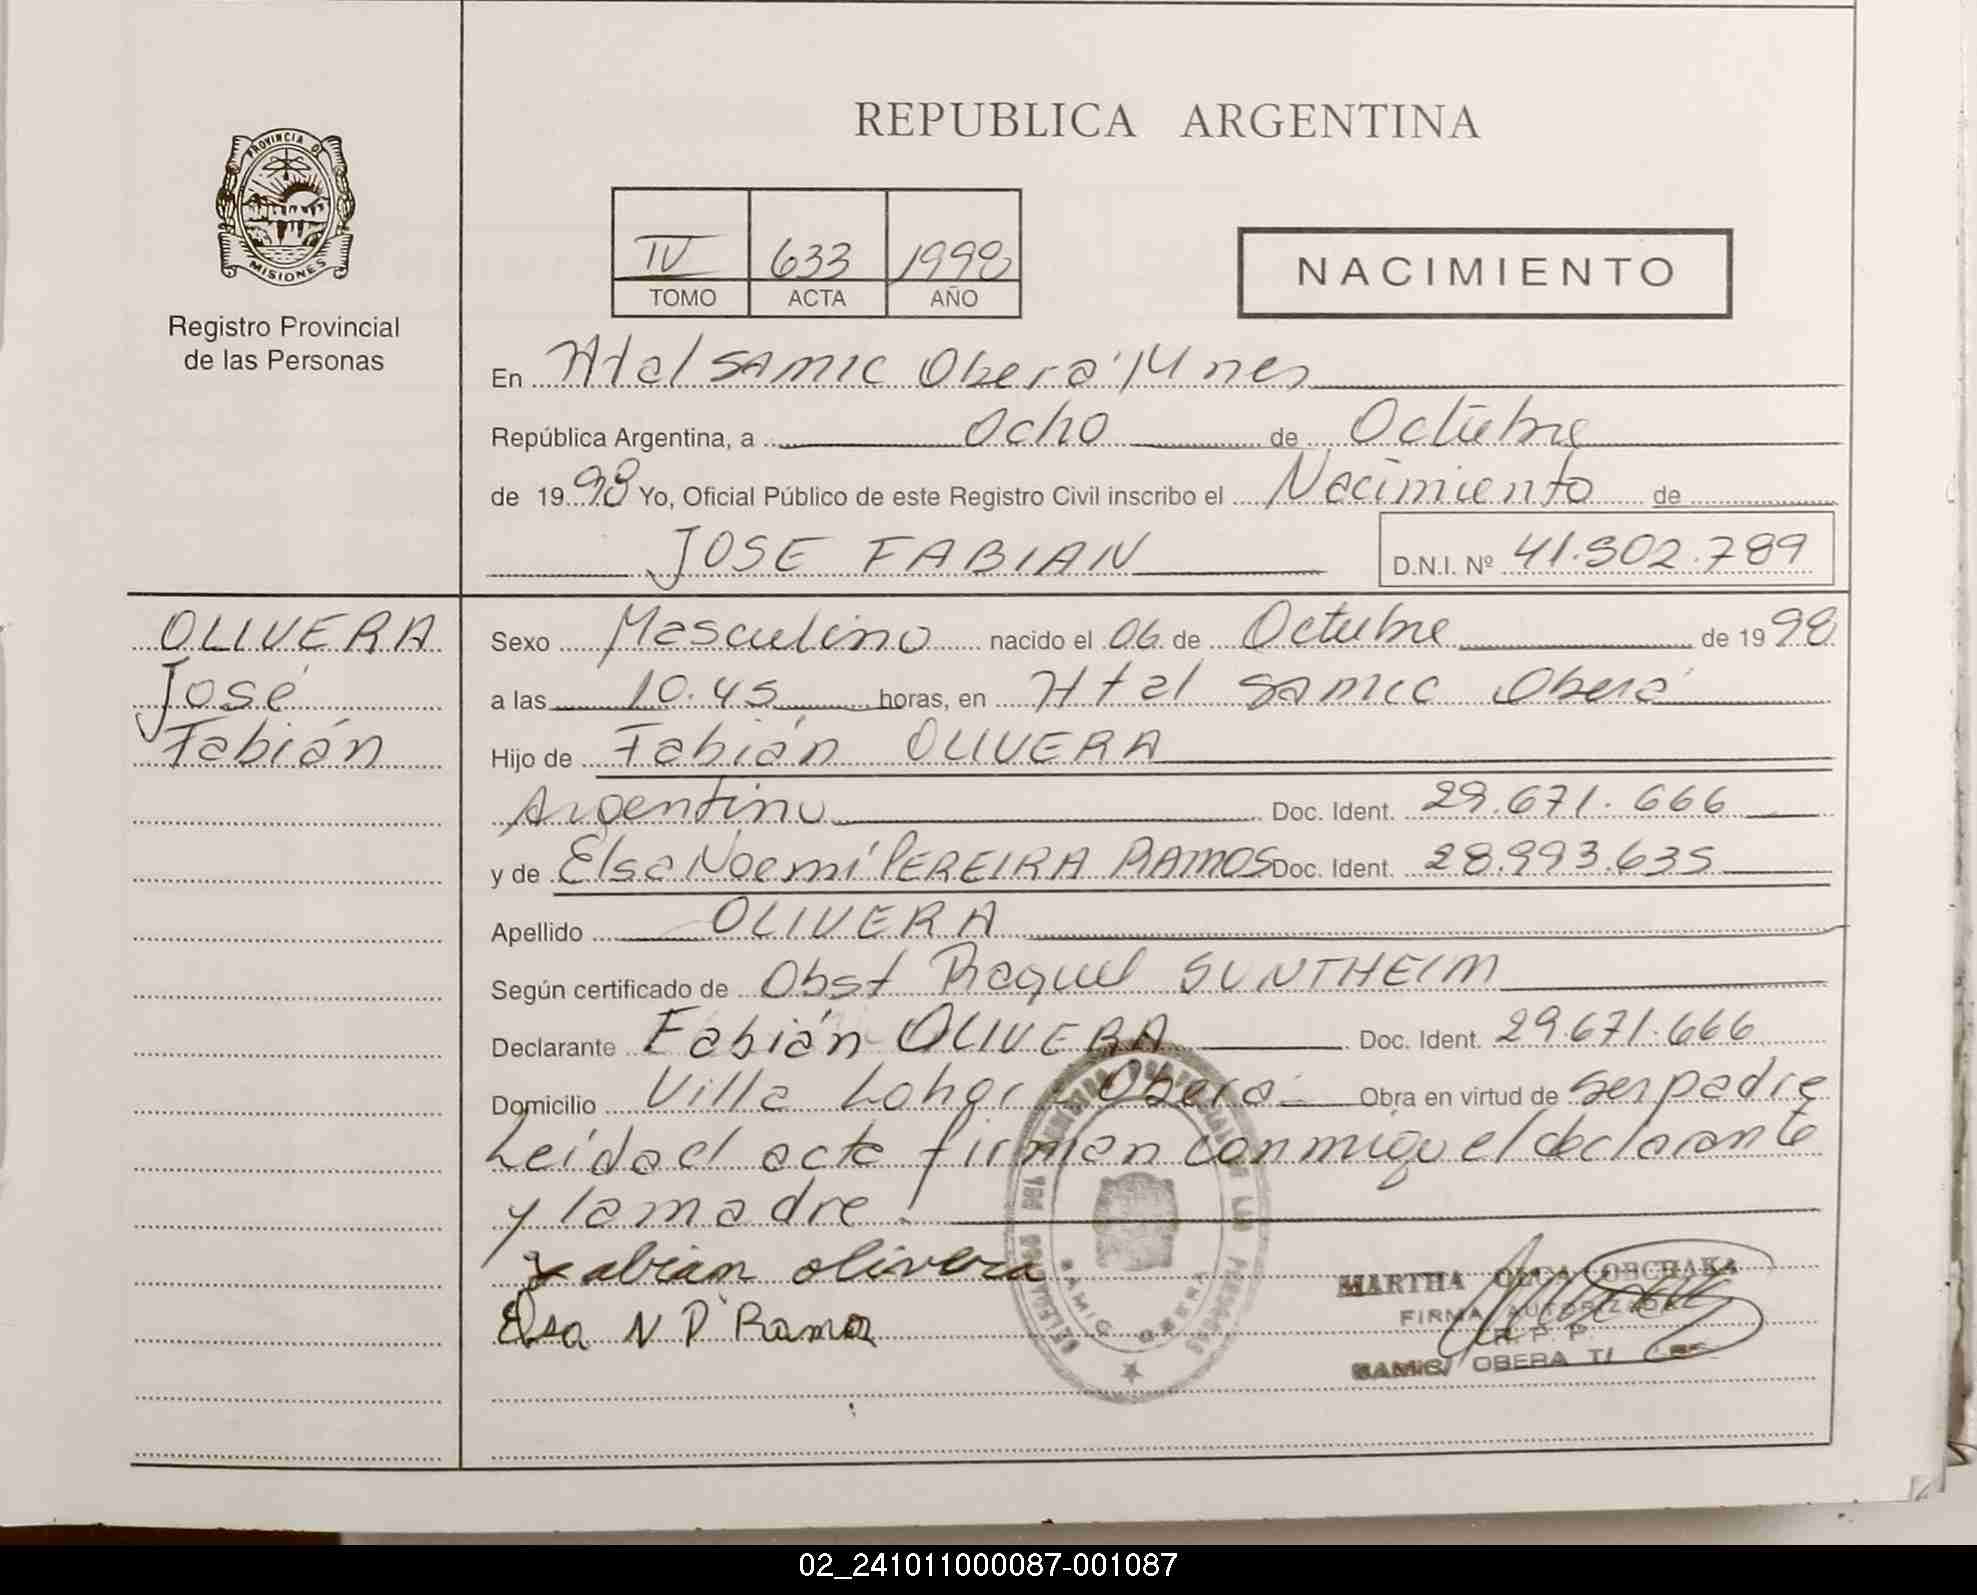 REPUBLICA ARGENTINA
PROVINCIA DE
MISIONES
Registro Provincial
de las Personas
IV 633 1998
TOMO ACTA AÑO
NACIMIENTO
En Htal SAMIC Oberá Mnes
República Argentina, a Ocho de Octubre
de 1998 Yo, Oficial Público de este Registro Civil inscribo el Nacimiento de
JOSE FABIAN D.N.I. Nº 41.502.789
OLIVERA
José
Fabián
Sexo Masculino nacido el 06 de Octubre de 1998
a las 10.45 horas, en Htal SAMIC Oberá
Hijo de Fabián OLIVERA
Argentino Doc. Ident. 29.671.666
y de Elsa Noemí PEREIRA RAMOS Doc. Ident. 28.993.635
Apellido OLIVERA
Según certificado de Obst Raquel SUNTHEIM
Declarante Fabián OLIVERA Doc. Ident. 29.671.666
Domicilio Villa Oberá Obra en virtud de ser padre
Leída el acta firman conmigo el declarante
y la madre.
Fabian olivera
Elsa N P Ramos
SAMIC OBERA
MARTHA OLGA OBCHAKA
FIRMA AUTORIZADA
R. P. P.
SAMIC/ OBERA
02_241011000087-001087